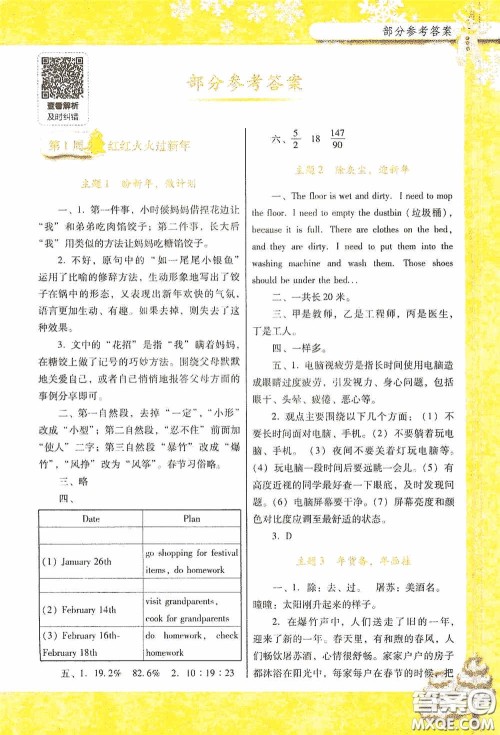 部分参考答案
查看解析
及时纠错
部分参考答案
第1周 红红火火过新年
主题1 盼新年，做计划
一、1. 第一件事，小时候妈妈借捏花边让
“我”和弟弟吃肉馅饺子；第二件事，长大后
“我”用类似的方法让妈妈吃糖馅饺子。
2. 不好，原句中的“如一尾尾小银鱼”
运用了比喻的修辞方法，生动形象地写出了饺
子在锅中的形态，又表现出新年欢快的气氛，
语言更加生动、有意趣。如果去掉，则失去了这
种效果。
3. 文中的“花招”是指“我”瞒着妈妈，
在糖饺上做了记号的巧妙方法。围绕父母默默
地关爱自己，或者自己悄悄地报答父母方面的
事例分享即可。
二、第一自然段，去掉“一定”，“小形”
改成“小型”；第二自然段，“忍不住”前面加
“使人”二字；第三自然段“暴竹”改成“爆
竹”，“风挣”改为“风筝”。春节习俗略。
三、略
四、
Date Plan
(1) January 26th go shopping for festival
items, do homework
(2) February 14th visit grandparents,
cook for grandparents
(3) February 16th-
February 18th do homework, check
homework
五、1. 19.2% 82.6% 2. 10:19:23
六、5/2 18 147/90
主题2 除旧尘，迎新年
一、The floor is wet and dirty. I need to mop
the floor. I need to empty the dustbin（垃圾桶），
because it is full. There are clothes on the bed,
and they are dirty. I need to put them into the
washing machine and wash them. Those shoes
should be under the bed…
二、一共长20米。
三、甲是教师，乙是工程师，丙是医生，
丁是工人。
四、一样多。
五、1. 电脑视疲劳是指长时间使用电脑造
成眼睛过度疲劳，引发视力、身心问题，包括
眼干、头晕、疲倦、恶心等。
2. 观点主要围绕以下几个方面：（1）不
要长时间面对电脑、手机。（2）不要躺着玩电
脑、手机。（3）夜间不要关着灯玩电脑、手机。
（4）玩电脑一段时间后要远眺，休息一会。（5）有
高度近视的同学最好查一下眼底，及时发现问
题。（6）电脑屏幕要干净。（7）屏幕亮度和
对比度应调至最舒适的状态。
3. D
主题3 年货备，年画挂
一、1. 除：去、过。 屠苏：美酒名。
曈曈：太阳刚升起来的样子。
2. 在爆竹声中，人们送走了旧的一年，
迎来了新的一年。春天里，有和煦的春风，人
们畅饮屠苏酒，心情很舒畅。家家户户的房子
都沐浴在阳光中，每家每户在春天的时候，把